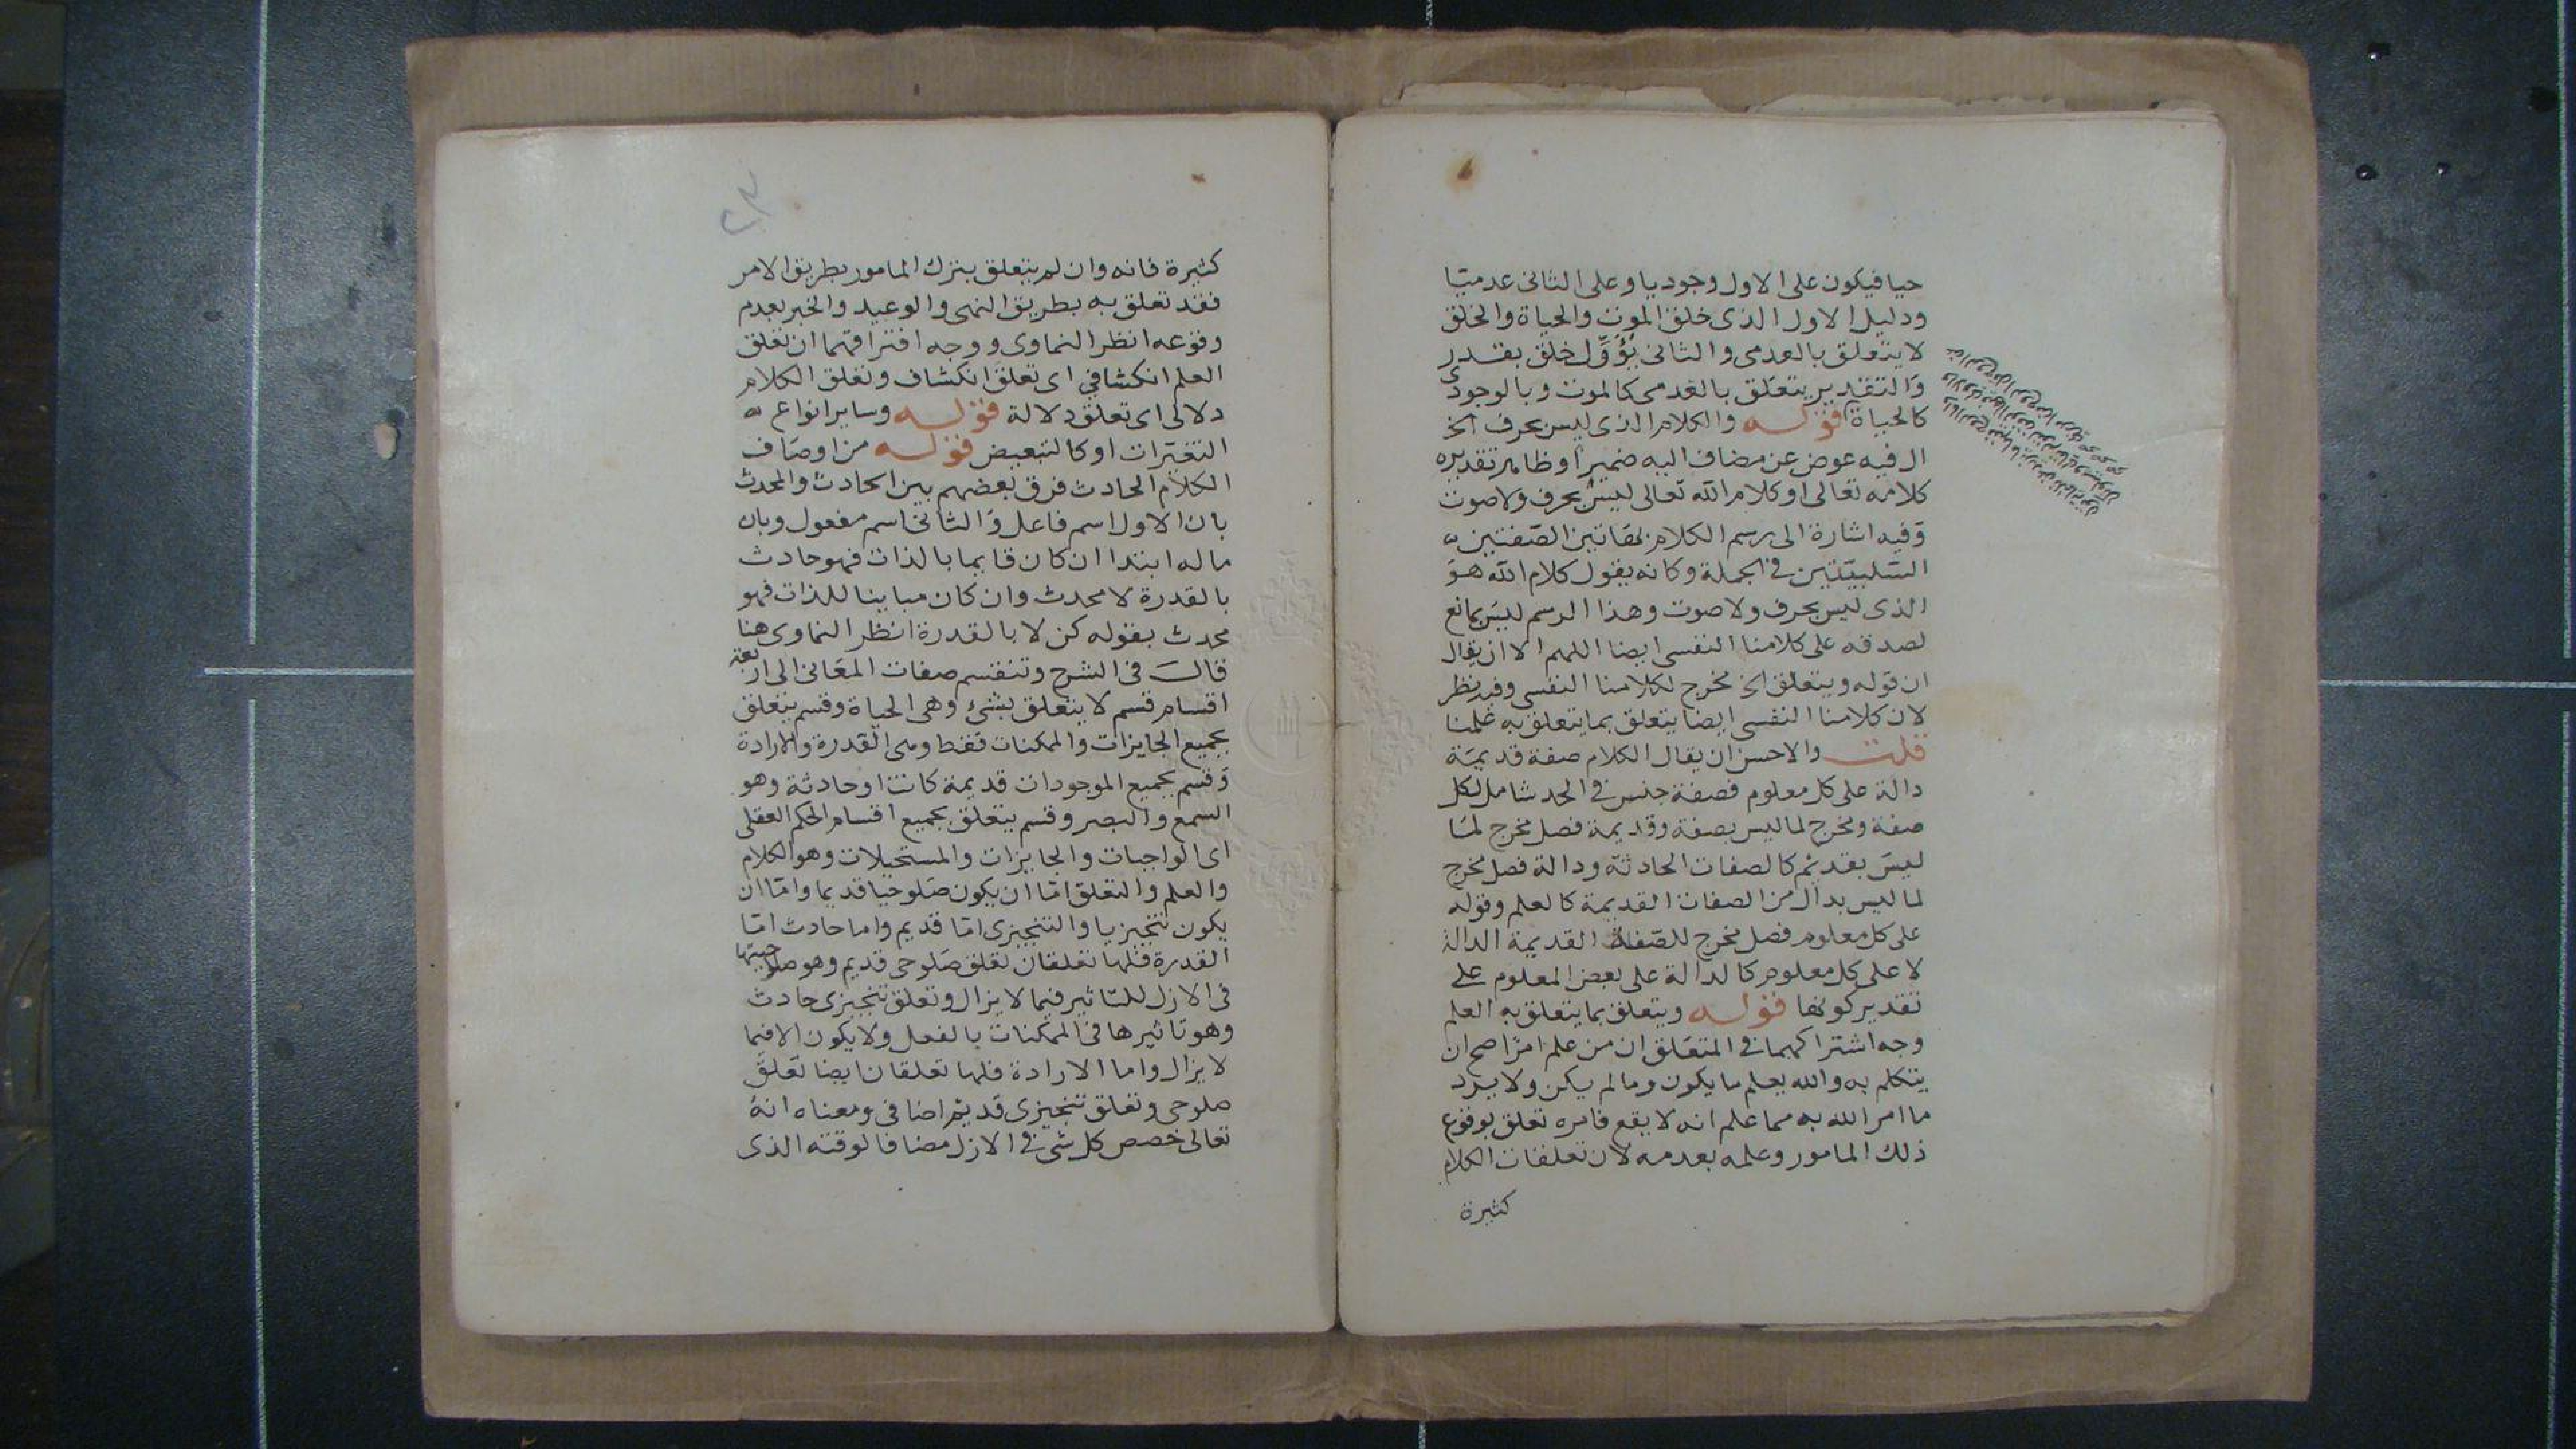 حيا فيكون على الاول وجوديا وعلى الثانى عدميا
ودليل الاول الذى خلق الموت والحياة والخلق
لا يتعلق بالعدمى والثانى يُؤَوِّل خلق بقدر
والتقدير يتعلق بالعدمى كالموت وبالوجودى
كالحياة قوله والكلام الذى ليس بحرف الخ
ال فيه عوض عن مضاف اليه ضميرا وظاهر تقديره
كلامه تعالى او كلام الله تعالى ليس بحرف ولا صوت
وفيه اشارة الى رسم الكلام بهاتين الصفتين
السلبيتين فى الجملة وكانه يقول كلام الله هو
الذى ليس بحرف ولا صوت وهذا الرسم ليس بمانع
لصدقه على كلامنا النفسى ايضا اللهم الا ان يقال
ان قوله ويتعلق الخ مخرج لكلامنا النفسى وفيه نظر
لان كلامنا النفسى ايضا يتعلق بما يتعلق به علمنا
قلت والاحسن ان يقال الكلام صفة قديمة
دالة على كل معلوم فصفة جنس فى الحد شامل لكل
صفة ومخرج لما ليس بصفة وقديمة فصل مخرج لما
ليس بقديم كالصفات الحادثة ودالة فصل مخرج
لما ليس بدال من الصفات القديمة كالعلم وقوله
على كل معلوم فصل مخرج للصفة القديمة الدالة
لا على كل معلوم كالدالة على بعض المعلوم على
تقدير كونها قوله ويتعلق بما يتعلق به العلم
وجه اشتراكهما فى المتعلق ان من علم امرا صح ان
يتكلم به والله يعلم ما يكون وما لم يكن ولا يرد
ما امر الله به مما علم انه لا يقع فامره تعلق بوقوع
ذلك المامور وعلمه بعدمه لان تعلقات الكلام
كثيرة
٢٣
كثيرة فانه وان لم يتعلق بترك المامور بطريق الامر
فقد تعلق به بطريق النهى والوعيد والخبر بعدم
وقوعه انظر النماوى ووجه افتراقهما ان تعلق
العلم انكشافي اى تعلق انكشاف وتعلق الكلام
دلالى اى تعلق دلالة قوله وساير انواع
التغيرات او كالتبعيض قوله من اوصاف
الكلام الحادث فرق بعضهم بين الحادث والمحدث
بان الاول اسم فاعل والثانى اسم مفعول وبان
ما له ابتدا ان كان قايما بالذات فهو حادث
بالقدرة لا محدث وان كان مباينا للذات فهو
محدث بقوله كن لا بالقدرة انظر النماوى هنا
قال فى الشرح وتنقسم صفات المعانى الى اربعة
اقسام قسم لا يتعلق بشئ وهى الحياة وقسم يتعلق
بجميع الجايزات والممكنات فقط وهى القدرة والارادة
وقسم بجميع الموجودات قديمة كانت او حادثة وهو
السمع والبصر وقسم يتعلق بجميع اقسام الحكم العقلى
اى الواجبات والجايزات والمستحيلات وهو الكلام
والعلم والتعلق اما ان يكون صلوحيا قديما واما ان
يكون تنجيزيا والتنجيزى اما قديم واما حادث اما
القدرة فلها تعلقان تعلق صلوحى قديم وهو صلاحيتها
فى الازل للتاثير فيما لا يزال وتعلق تنجيزى حادث
وهو تاثيرها فى الممكنات بالفعل ولا يكون الا فيما
لا يزال واما الارادة فلها تعلقان ايضا تعلق
صلوحى وتعلق تنجيزى قديم اضافى ومعناه انه
تعالى خصص كل شى فى الازل مضافا لوقته الذى